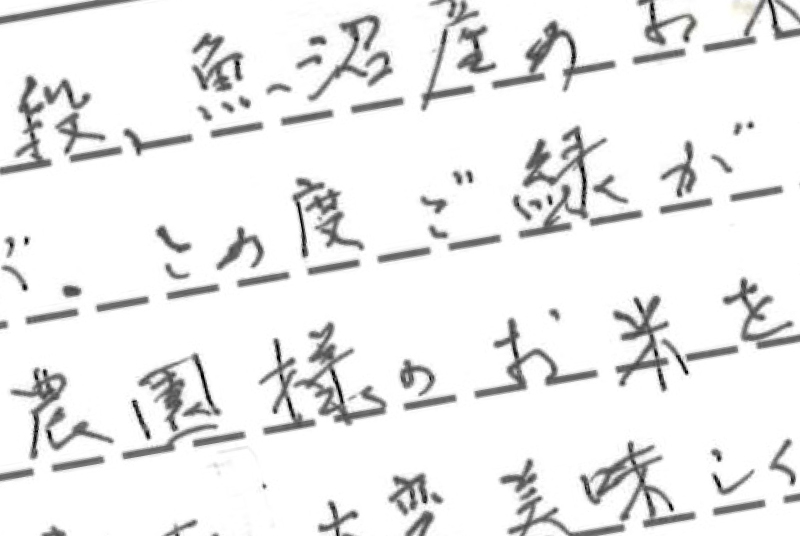 段、魚沼産のお米
が。この度ご縁が
農園様のお米を
大変美味しく